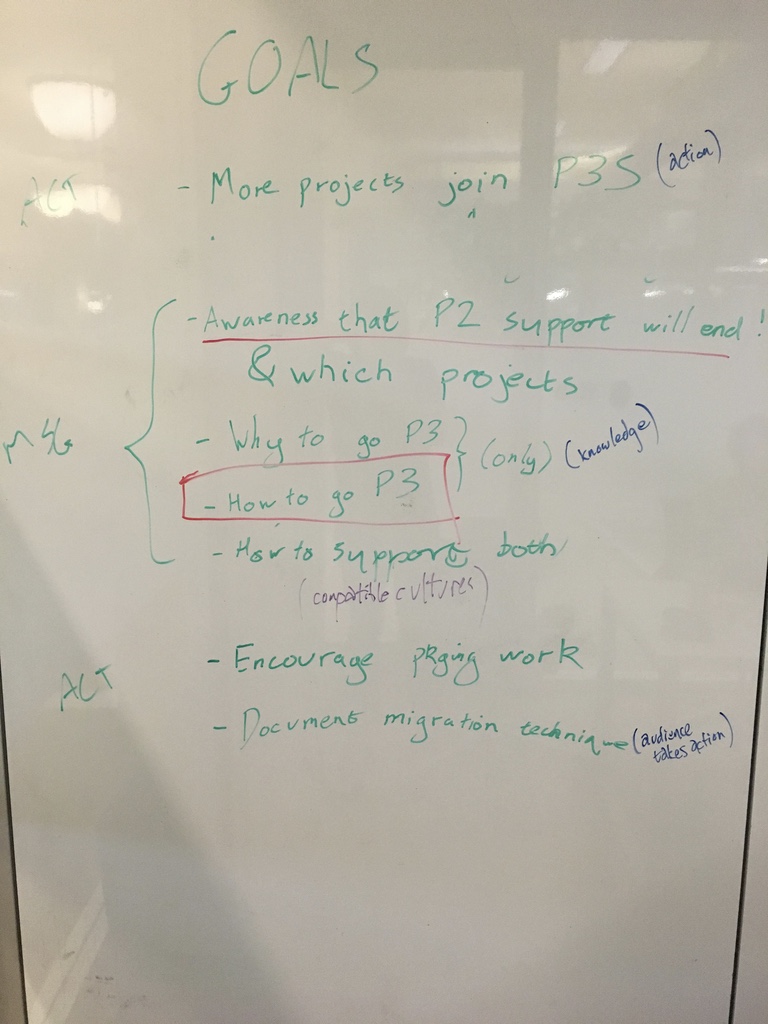 GOALS
ACT - More projects join P3S (action)
- Awareness that P2 support will end!
& which projects
MSG
- Why to go P3 } (only) (knowledge)
- How to go P3
- How to support both
(compatible cultures)
ACT
- Encourage pkging work
- Document migration technique (audience takes action)